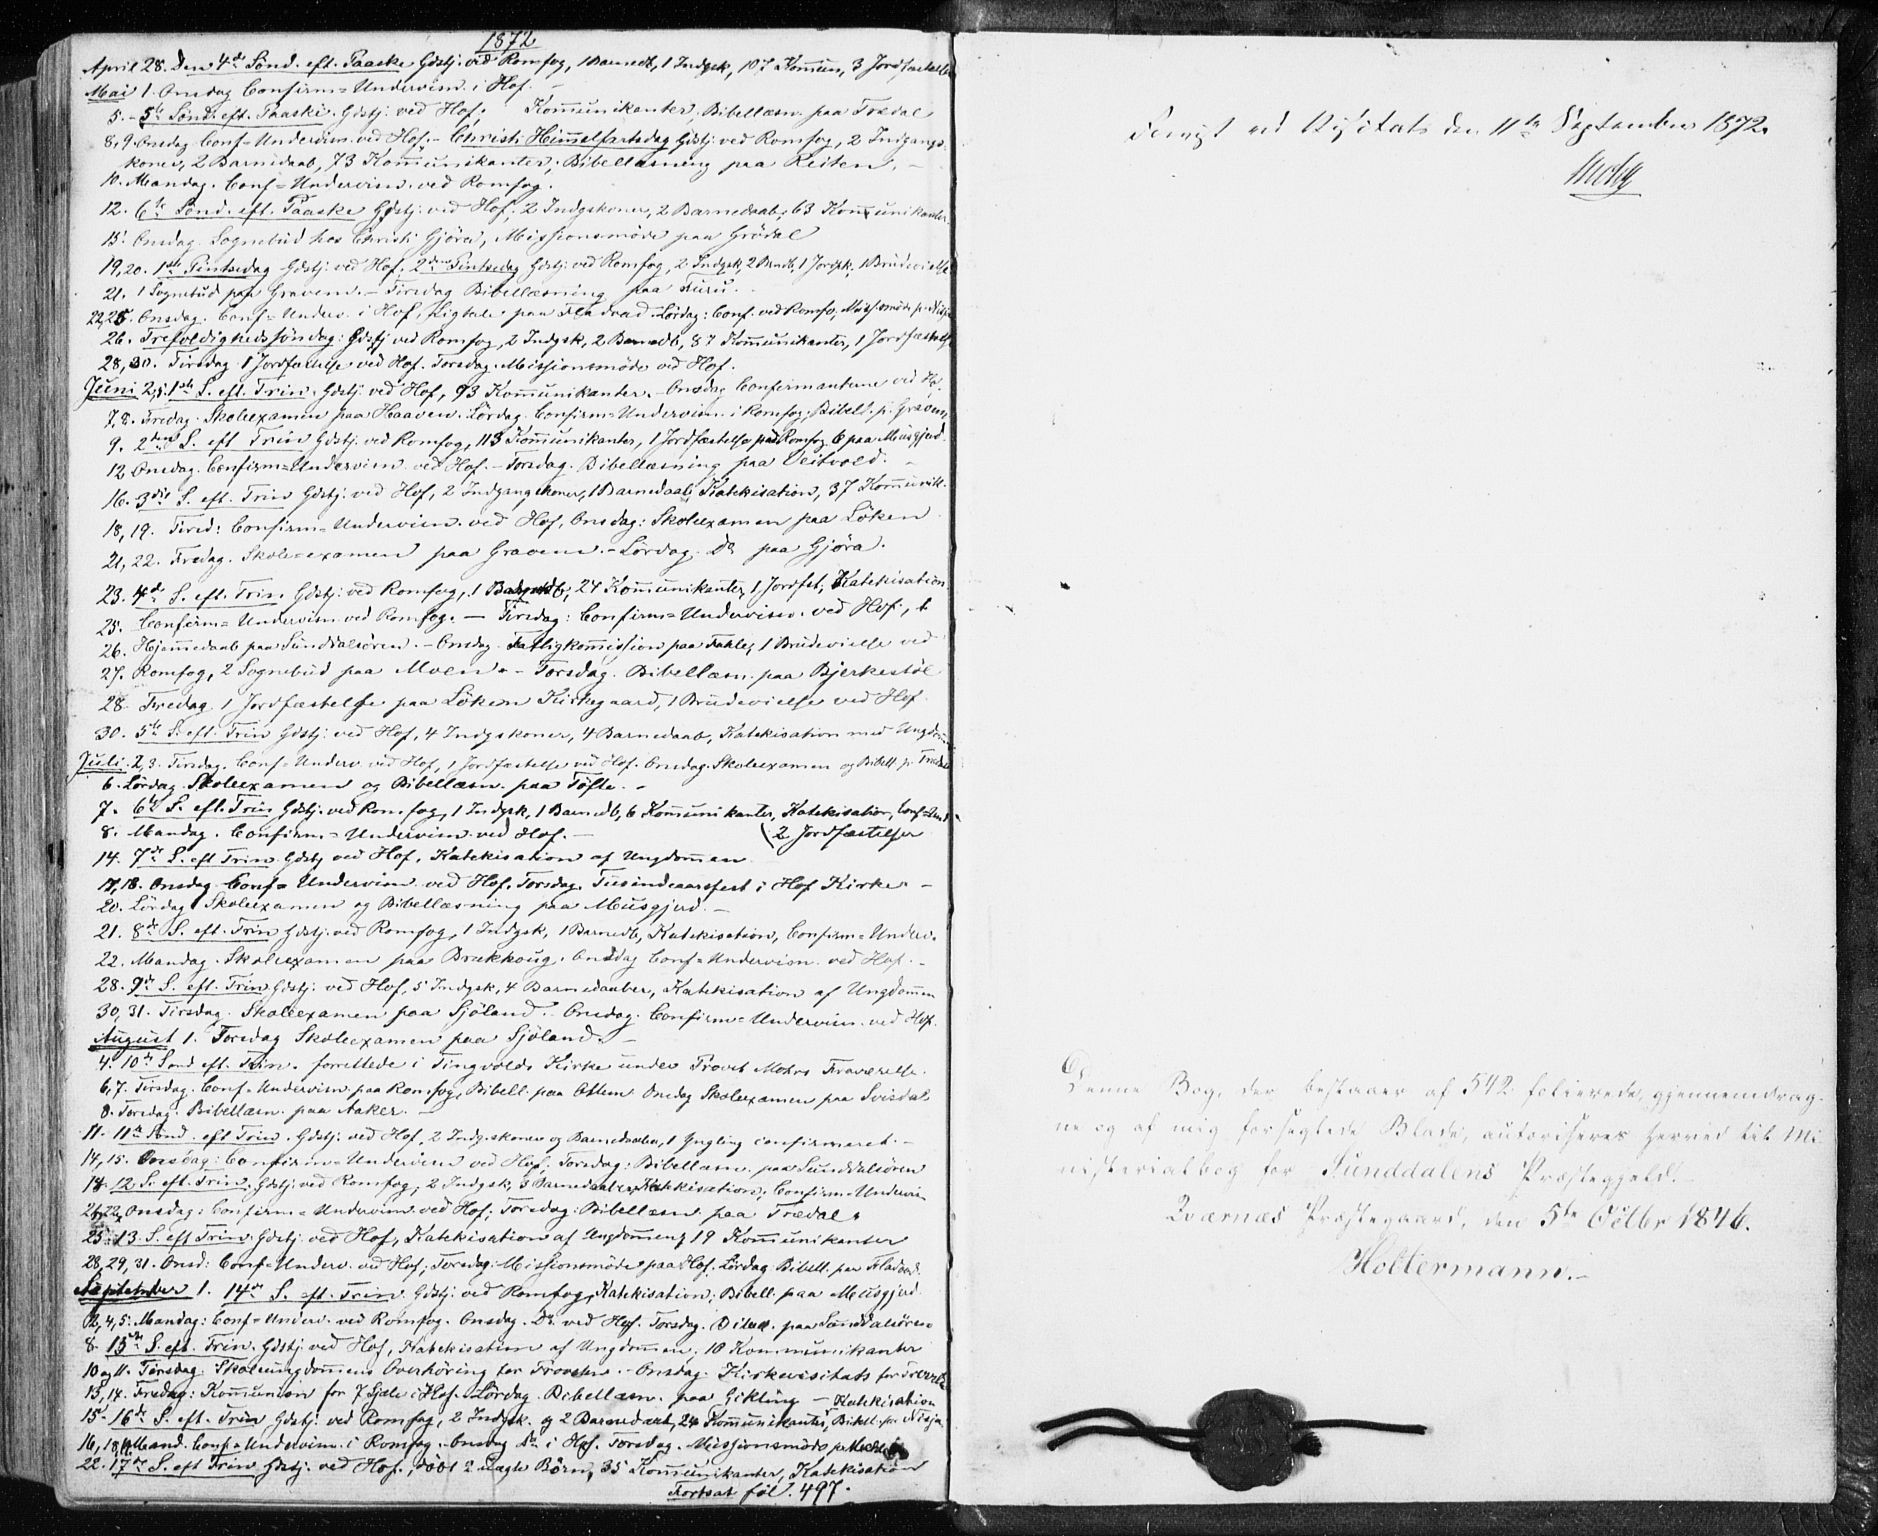 1872
April 28. Den 4de Sönd. eft. Paaske Gdstj. ved Romfog, 1 Barnedb, 1 Indgsk, 107 Kommun, 3 Jordfæstelser
Mai 1. Onsdag Confirm=Undervisn. i Hof. –
5. – 5te Sönd. eft. Paaske. Gdstj. ved Hof. Kommunikanter, Bibellæsn. paa Trædal
8, 9. Onsdag Conf=Undervisn. ved Hof. – Christi Himmelfartsdag Gdstj. ved Romfog, 2 Indgangs
koner, 2 Barnedaab, 73 Kommunikanter, Bibellæsning paa Reiten. –
10. Mandag. Conf=Undervisn. ved Romfog.
12. 6te Sönd. eft. Paaske Gdstj. ved Hof, 2 Indgskoner, 2 Barnedaab, 63 Kommunikanter
15. Onsdag. Sognebud hos Christi Gjöra, Missionsmöde paa Grödal
19, 20. 1ste Pintsedag Gdstj. ved Hof. 2den Pintsedag Gdstj. ved Romfog, 2 Indgsk, 2 Barndb, 1 Jordfk, 1 Brudevielse
21. 1 Sognebud paa Gravem. – Tirsdag Bibellæsning paa Furu.
22, 25. Onsdag. Conf=Underv. i Hof, Ligtale paa Fladvad. Lördag: Conf. ved Romfo, Missmöde p. Nisja
26. Trefoldighedssöndag: Gdstj ved Romfog, 2 Indgsk, 2 Barnedb, 87 Kommunikanter, 1 Jordfæstelse
28, 30. Tirsdag 1 Jordfæstelse ved Hof. Torsdag. Missionsmöde ved Hof.
Juni 2, 5. 1ste S. eft. Trin. Gdstj. ved Hof, 93 Kommunikanter. Onsdag Confirmanterne ved Hof.
7, 8. Fredag. Skoleexamen paa Haaven. Lördag. Confirm=Undervisn. i Romfog, Bibell. p. Gravem
9. 2den S. eft Trin Gdstj. ved Romfog, 113 Kommunikanter, 1 Jordfæstelse paa Romfog 6 paa Musgjerd.
12. Onsdag. Confirm=Undervisn ved Hof. – Torsdag. Bibellæsning paa Veitvold. –
16. 3die S. eft. Trin Gdstj. ved Hof, 2 Indgangskoner, 1 Barnedaab, Katekisation, 37 Kommunik.
18, 19. Tirsd: Confirm=Undervisn. ved Hof, Onsdag: Skoleexamen paa Löken
21, 22. Fredag. Skole=examen paa Gravem. – Lördag. Do paa Gjöra.
23. 4de S. eft. Trin. Gdstj. ved Romfog, 1 24 Kommunikanter, 1 Jordfst, Katekisation
25. Confirm=Undervisn ved Romfog. – Tirsdag: Confirm=Undervisn. ved Hof, 1
26. Hjemmedaab paa Sunddalsören. – Onsdag Fattigkommission paa Fahle, 1 Brudevielse ved
27. Romfog, 2 Sognebud paa Moen. – Torsdag. Bibellæsn. paa Bjerkestöl
28. Fredag 1 Jordfæstelse paa Löken Kirkegaard, 1 Brudevielse ved Hof.
30. 5te S. eft. Trin Gdstj. ved Hof, 4 Indgskoner, 4 Barnedaab, Katekisation med Ungdom
Juli. 2, 3. Tirsdag. Conf=Underv. ved Hof, 1 Jordfæstelse ved Hof. Onsdag. Skoleexamen og Bibell. p. Trædal
6. Lördag Skoleexamen og Bibellæsn. paa Töfte. –
7. 6te S. eft. Trin Gdstj. ved Romfog, 1 Indgsk, 1 Barnedb, 6 Kommunikanter, Katekisation, Conf=Und
8. Mandag. Confirm.=Undervisn ved Hof. – (2 Jordfæstelser
14. 7de S. eft Trin. Gdstj ved Hof, Katekisation af Ungdommen
17, 18. Onsdag Conf=Undervisn. ved Hof. Torsdag. Tusindeaarsfest i Hof Kirke. –
20. Lördag Skoleexamen og Bibellæsning paa Musgjerd. –
21. 8de S. eft. Trin Gdstj. ved Romfog, 1 Indgsk, 1 Barnedb, Katekisation, Confirm=Underv.
22. Mandag. Skoleexamen paa Brækhoug. Onsdag Conf=Undervisn. ved Hof. –
28. 9de S. eft. Trin. Gdstj. ved Hof, 5 Indgsk, 4 Barnedaaber, Katekisation af Ungdommen
30, 31. Tirsdag. Skoleexamen paa Sjöland. – Onsdag. Confirm=Undervisn. ved Hof.
August 1. Torsdag Skoleexamen paa Sjöland. –
4. 10de Sönd eft. Trin. forrettede i Tingvolds Kirke under Provst Mohrs Fraværelse.
6, 7. Tirsdag. Conf=Undervisn. paa Romfog, Bibell. paa Ottem Onsdag Skoleexamen paa Svisdal
8. Torsdag. Bibellæsn. paa Aaker. –
11. 11te Sönd. eft Trin. Gdstj. ved Hof, 2 Indgskoner og Barnedaaber, 1 Yngling confirmeret. –
14, 15. Onsdag: Confirm=Undervisn ved Hof, Torsdag: Bibellæsn. paa Sunddalsören
18. 12. S. eft. Trin. Gdstj. ved Romfog, 2 Indgsk, 3 Barnedaaber, Katekisation, Confirm=Undervis
21, 22. Onsdag: Confirm=Undervisn. ved Hof, Torsdag: Bibellæsn. paa Trædal.
25. 13. S. eft Trin. Gdstj. ved Hof, Katekisation af Ungdommen, 19 Kommunikanter
28, 29, 31. Onsd: Conf=Underv. ved Hof, Torsdag. Missionsmöde paa Hof. Lördag Bibell. paa Fladvad.
September 1. 14de S. eft. Trin. Gdstj. ved Romfog, Katekisation, Bibell. paa Musgjerd.
2, 4, 5. Mandag: Conf=Underv. ved Romfog. Onsdag. Do ved Hof. Torsdag. Bibell. paa Sunddalsören
8. 15de S. eft. Trin. Gdstj. ved Hof, Katekisation af Ungdommen, 10 Kommunikanter
10 og 11. Tirsdag. Skoleungdommens Overhöring for Provsten. – Onsdag. Kirkevisitats for Provsten
13, 14. Fredag: Kommunion for 7 Sjæle i Hof. Lördag. Bibellæsn. paa Gikling – Katekisation
15. 16de S. eft. Trin Gdstj. ved Romfog, 2 Indgsk. og 2 Barnedaab, 24 Kommunikanter, Bibell. p. Nisja
16, 18, 19. Mand. Conf=Undervisn. i Romfog. Onsdag Do i Hof. Torsdag. Missionsmöde p.
22. 17de S. eft Trin Gdstj. ved Hof, döbt 2 uægte Börn, 35 Kommunikanter, Katekisation
Fortsat föl. 497.
Fremlagt ved Visitats den 11te September 1872.
Mohr
Denne Bog, der bestaaer af 542 folierede, gjennemdrag-
ne og af mig forseglede Blade, autoriseres herved til Mi
nisterialbog for Sunddalens Præstegjeld. –
Qværnæs Præstegaard, den 5te Octbr 1846.
Holtermann. –